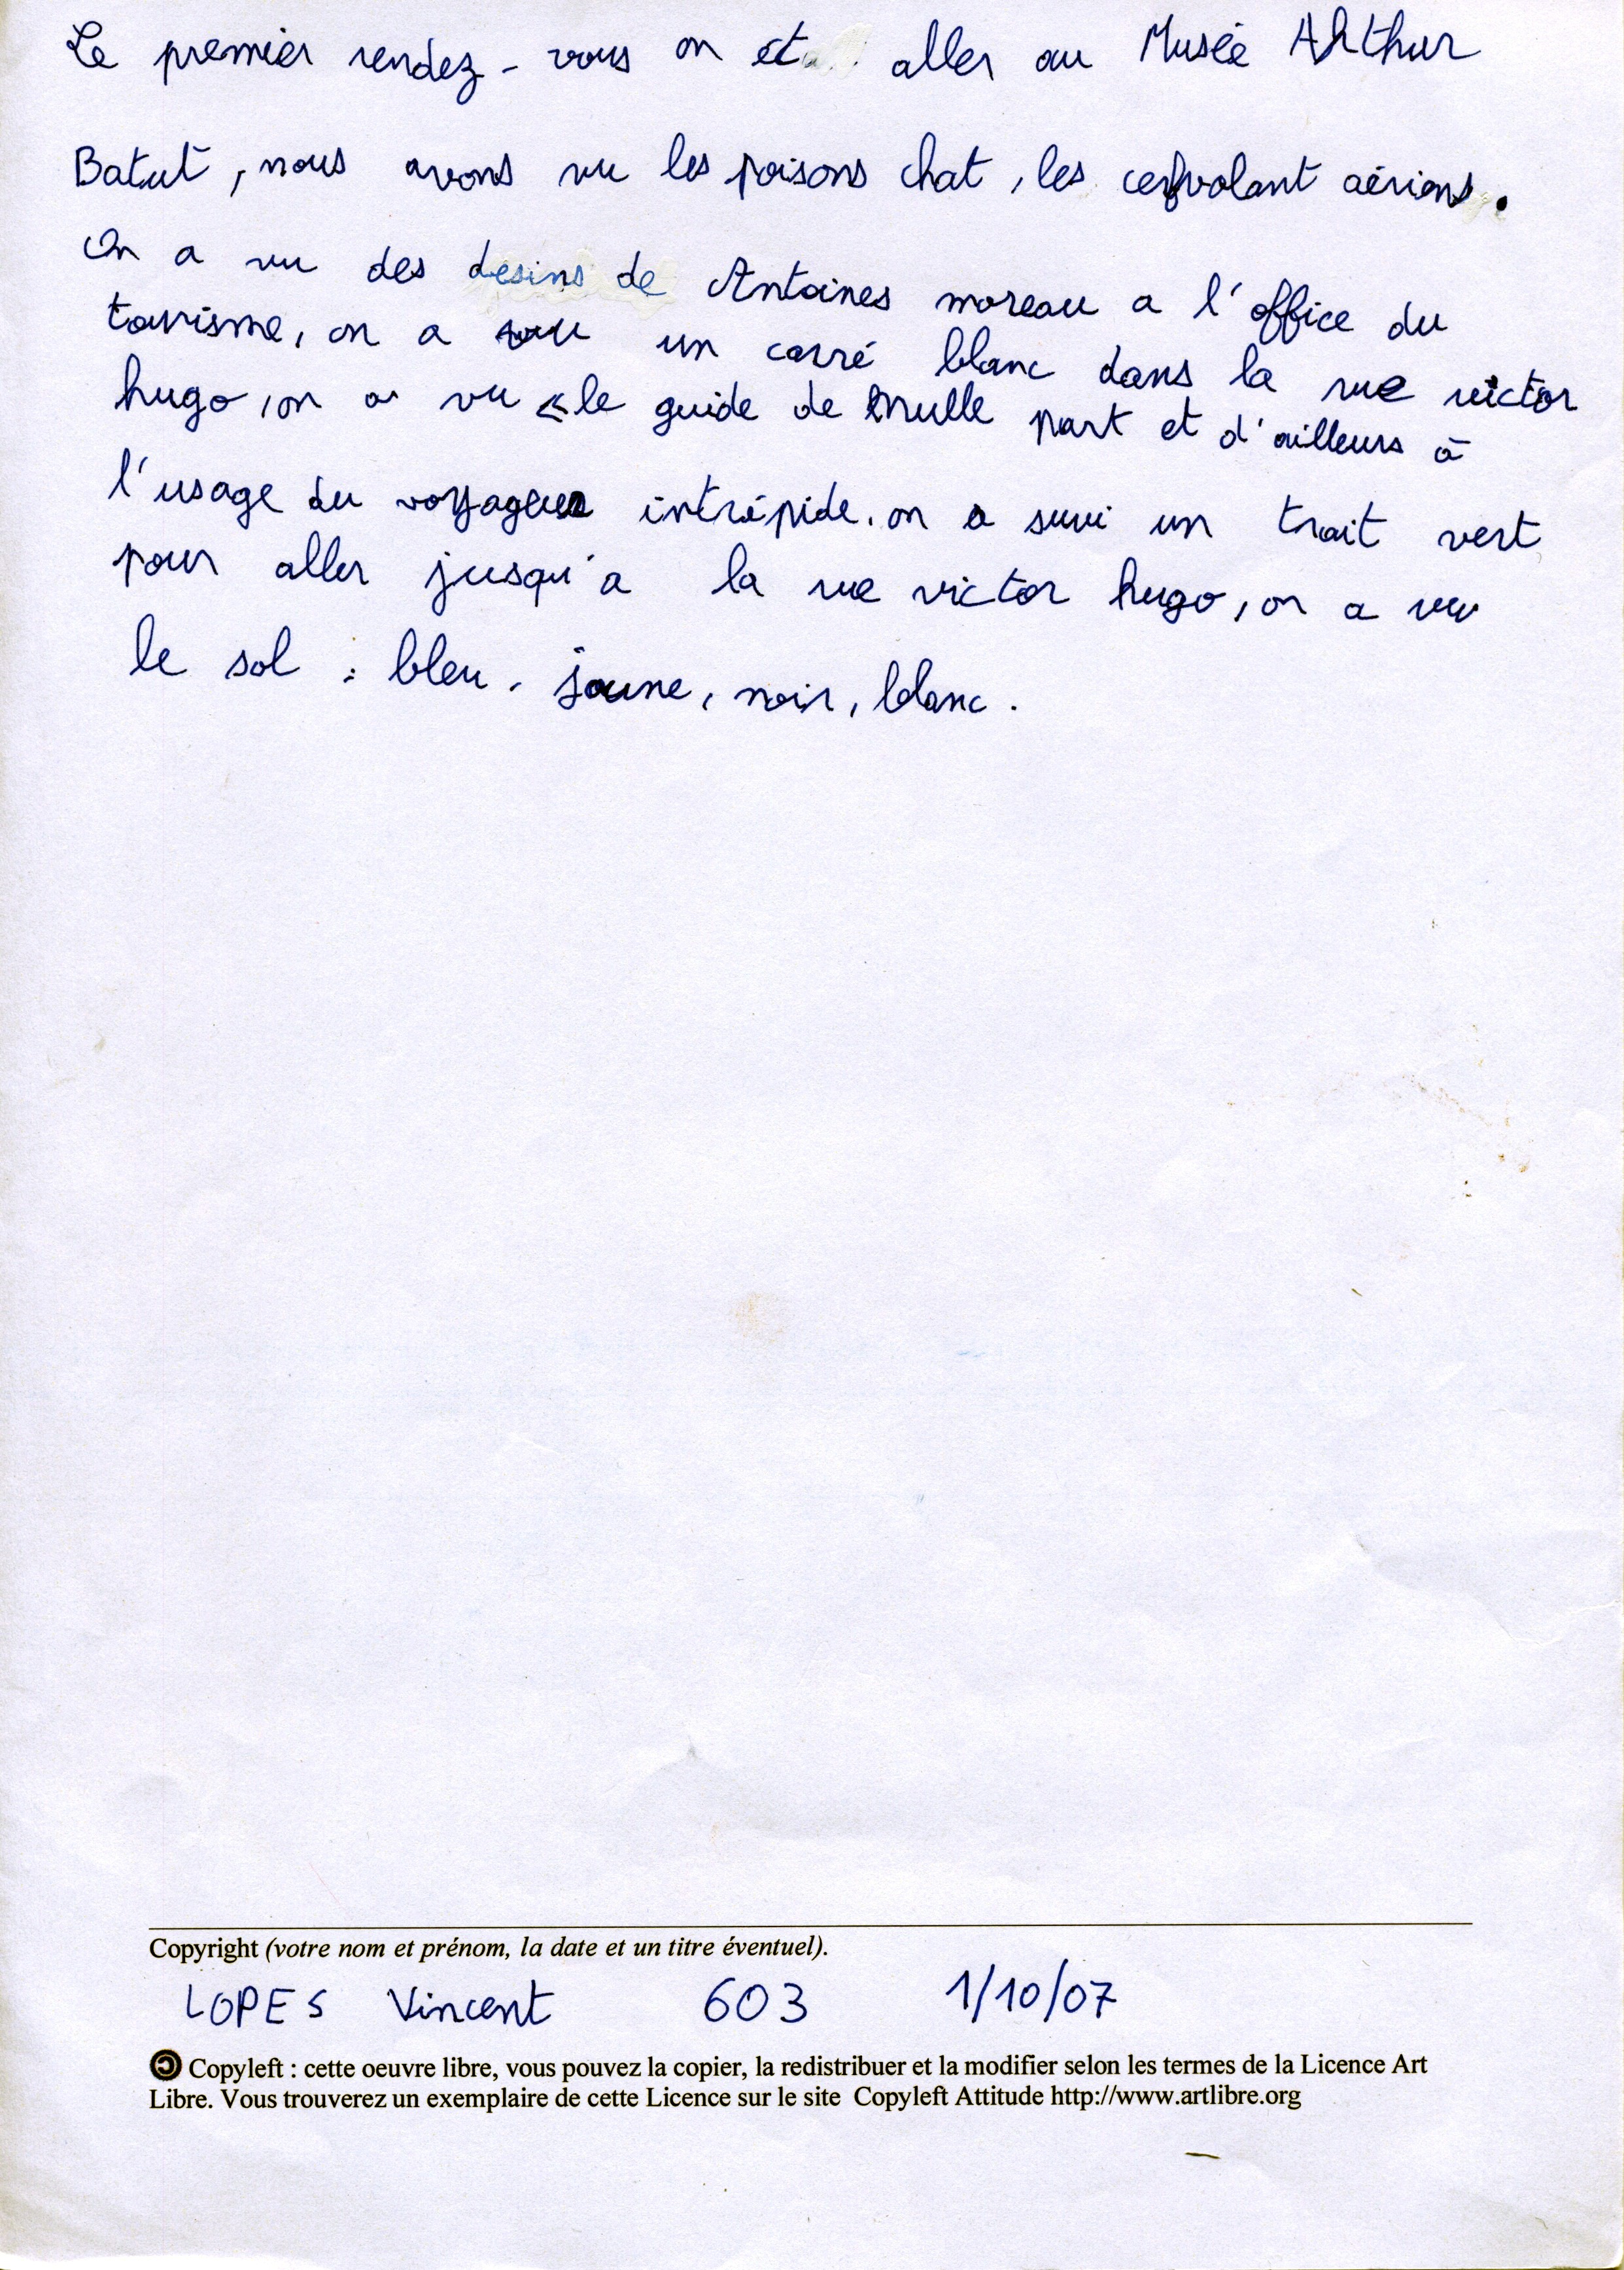 Le premier rendez-vous on et aller au Musée Arthur
Batut, nous avons vu les poisons chat, les cerfvolant aériens.
On a vu des desins de Antoines moreau a l'office du
tourisme, on a vu un carré blanc dans la rue victor
hugo, on a vu «le guide de nulle part et d'ailleurs à
l'usage du voyageur intrépide. on a suivi un trait vert
pour aller jusqu'a la rue victor hugo, on a vu
le sol : bleu, jaune, noir, blanc.
Copyright (votre nom et prénom, la date et un titre éventuel).
LOPES Vincent 603 1/10/07
Copyleft : cette oeuvre libre, vous pouvez la copier, la redistribuer et la modifier selon les termes de la Licence Art
Libre. Vous trouverez un exemplaire de cette Licence sur le site Copyleft Attitude http://www.artlibre.org